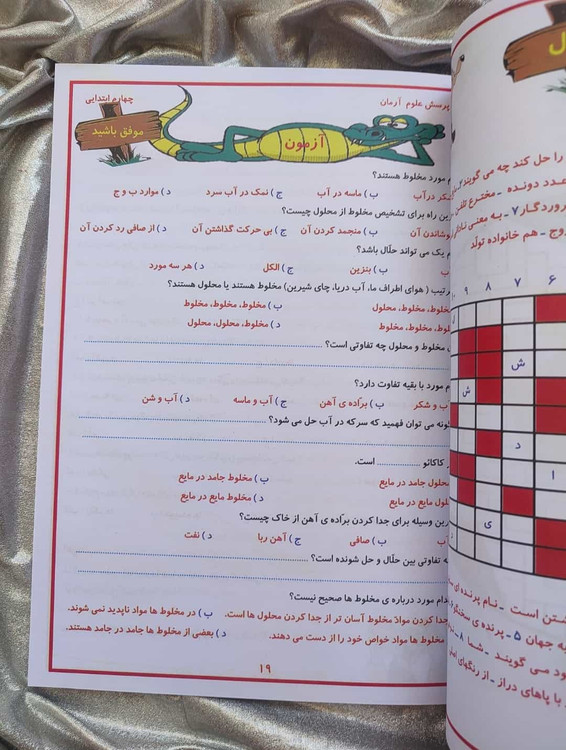 چهارم ابتدایی
پرسش علوم آرمان
موفق باشید
آزمون
مورد مخلوط هستند؟
شکر در آب ب) ماسه در آب ج) نمک در آب سرد د) موارد ب و ج
راه برای تشخیص مخلوط از محلول چیست؟
ب) منجمد کردن آن ج) بی حرکت گذاشتن آن د) از صافی رد کردن آن
یک می تواند حلّال باشد؟
ب) بنزین ج) الکل د) هر سه مورد
( هوای اطراف ما، آب دریا، چای شیرین) مخلوط هستند یا محلول هستند؟
مخلوط، محلول ب) مخلوط، مخلوط، مخلوط
مخلوط، مخلوط د) مخلوط، محلول، محلول
مخلوط و محلول چه تفاوتی است؟
مورد با بقیه تفاوت دارد؟
آب و شکر ب) برّاده ی آهن ج) آب و ماسه د) آب و شن
می توان فهمید که سرکه در آب حل می شود؟
کاکائو .......... است.
محلول جامد در مایع ب) مخلوط جامد در مایع
مایع در مایع د) مخلوط مایع در مایع
وسیله برای جدا کردن برّاده ی آهن از خاک چیست؟
ب) صافی ج) آهن ربا د) نفت
تفاوتی بین حلّال و حل شونده است؟
مورد درباره ی مخلوط ها صحیح نیست؟
جدا کردن موادّ مخلوط آسان تر از جدا کردن محلول ها است. ب) در مخلوط ها مواد ناپدید نمی شوند.
مخلوط ها مواد خواص خود را از دست می دهند. د) بعضی از مخلوط ها جامد در جامد هستند.
۱۹
را حل کند چه می گویند
عدد دونده - مخترع تلفن
۷ - به معنی
هم خانواده تولّد
۶ ۷ ۸ ۹
ش
ش
د
ا
ی
است - نام پرنده ای
به جهان ۵ - پرنده ی
می گویند - شما ۸ -
با پاهای دراز - از رنگهای